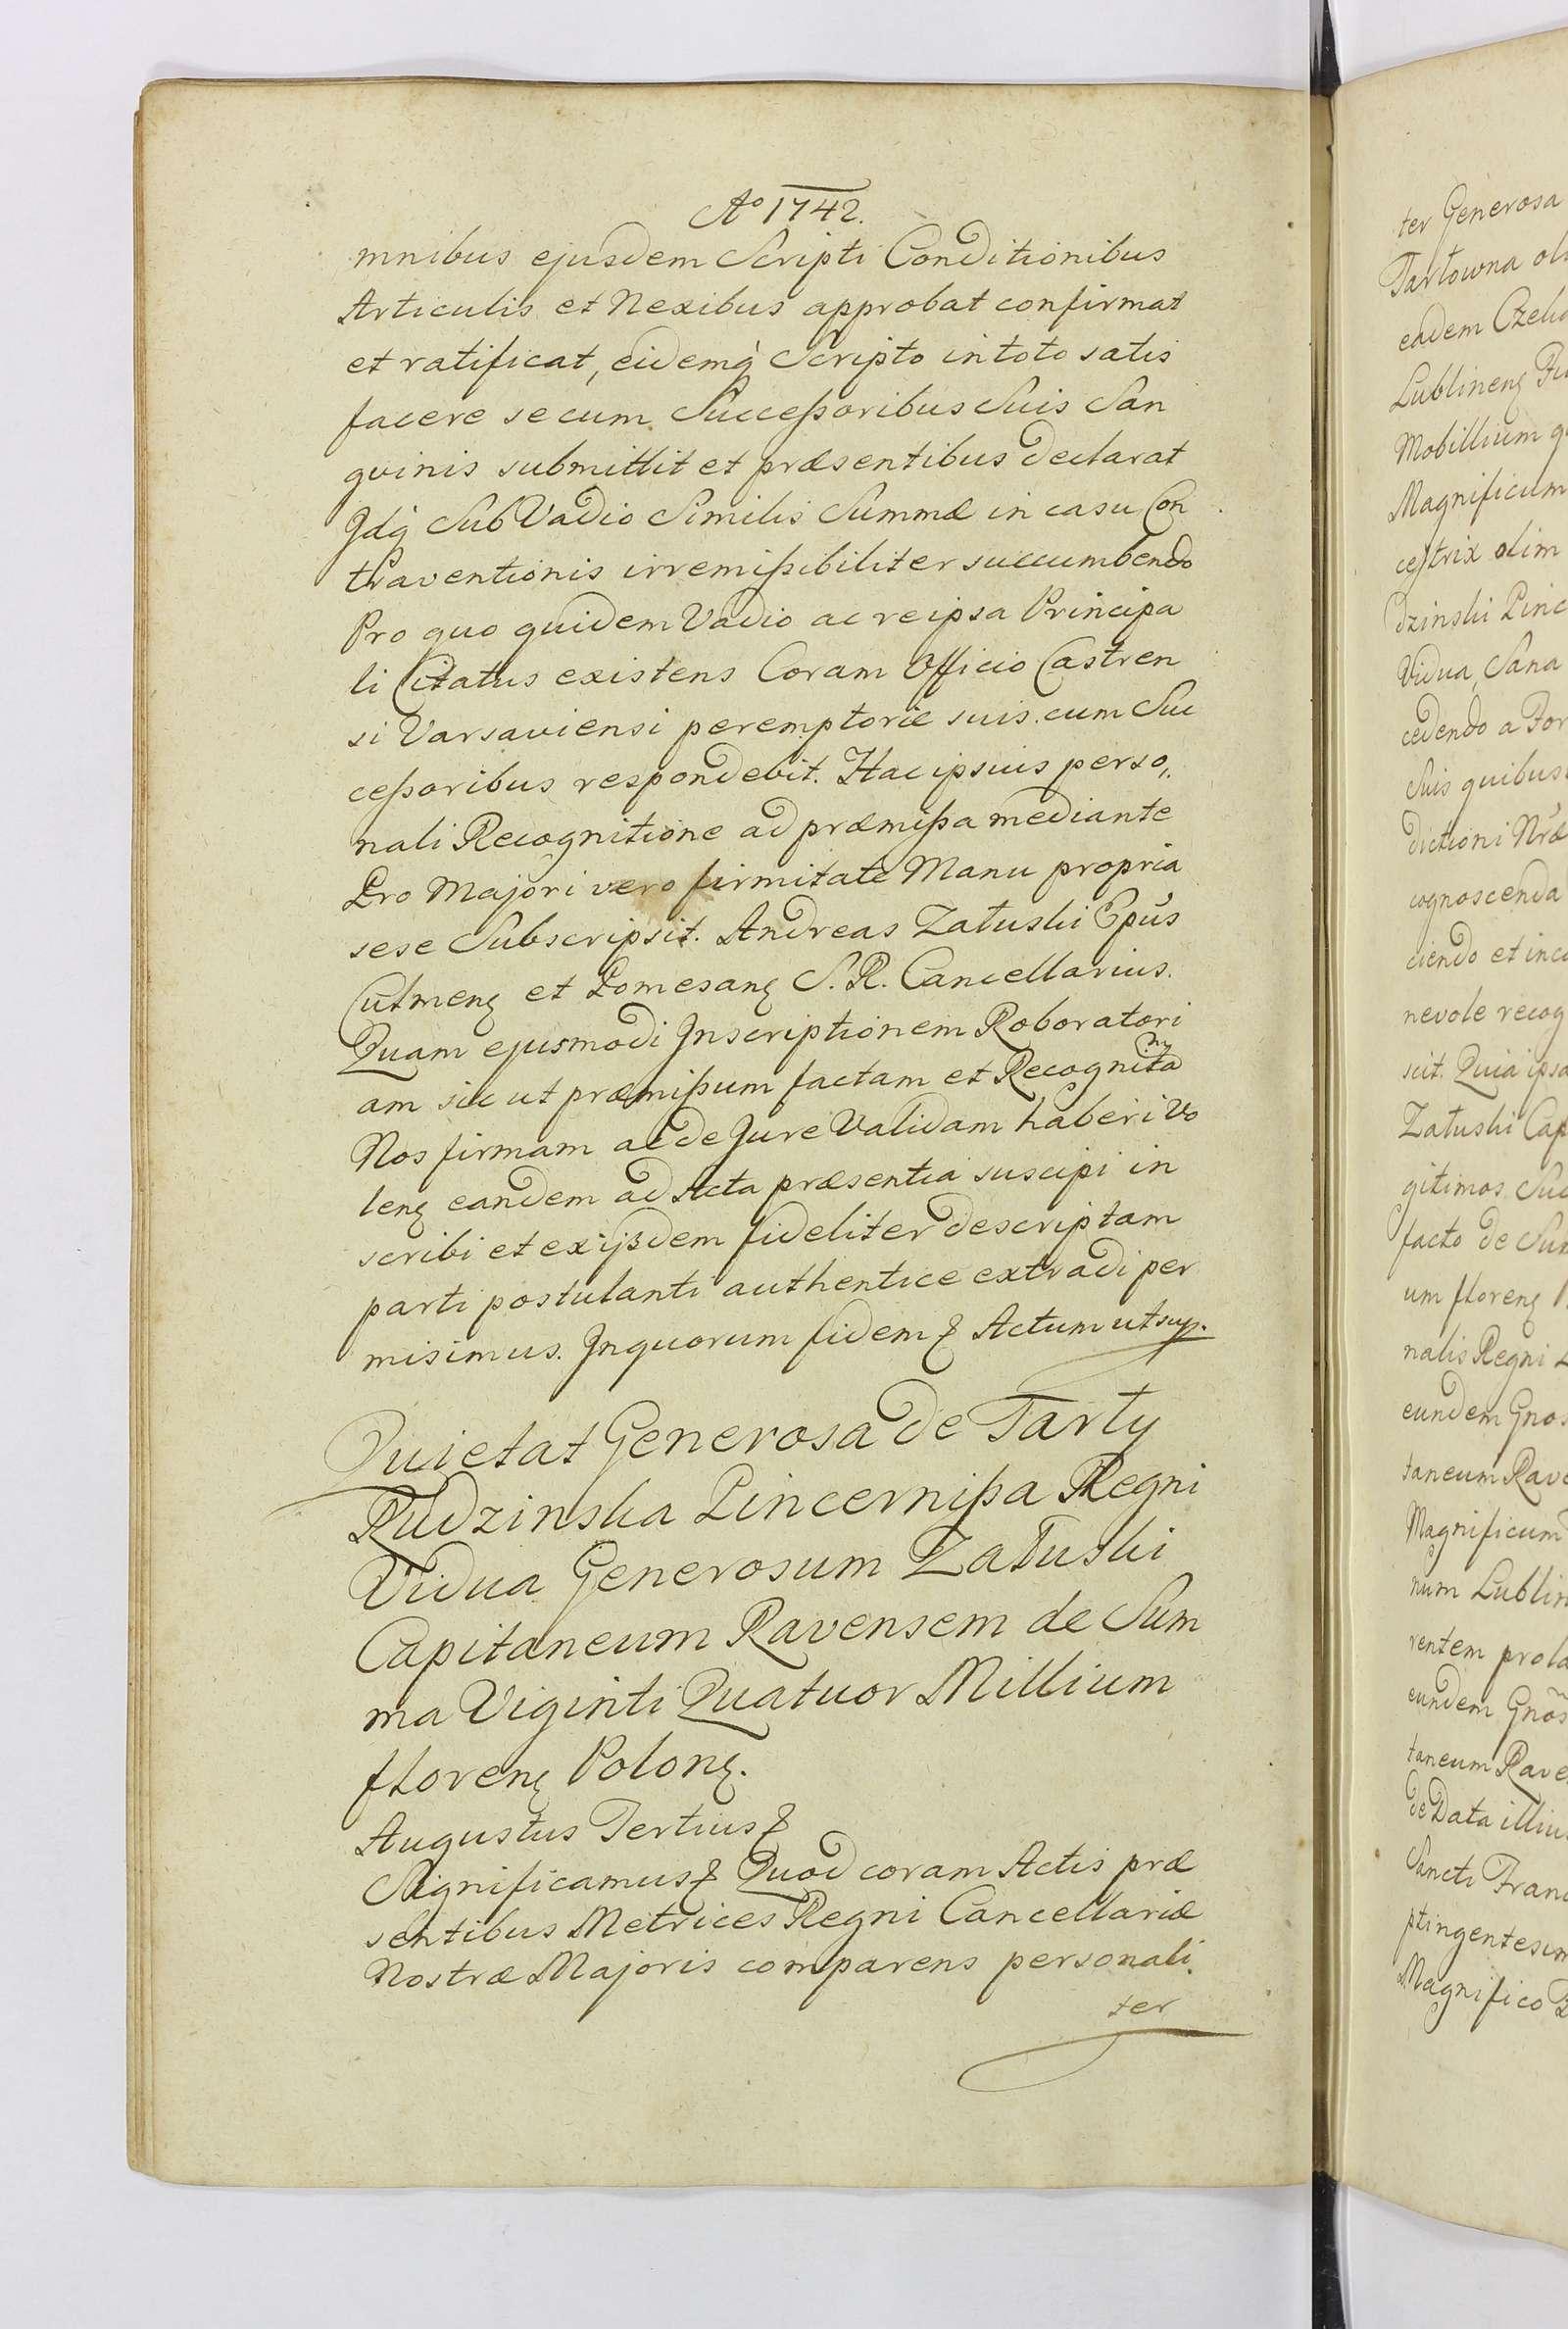 Ao 1742.
mnibus ejusdem Scripti Conditionibus
Articulis et Nexibus approbat confirmat
et ratificat, eidemq Scripto in toto satis
facere se cum Succeßoribus Suis San
gvinis submittit et præsentibus declarat
Jdq Sub Vadio Similis Summæ in casu Con
traventionis irremißibiliter succumbendo
Pro quo quidem Vadio ac re ipsa Principa
li Citatus existens Coram Officio Castren
si Varsaviensi peremptorie suis cum Suc
ceßoribus respondebit. Hac ipsius perso„
nali Recognitione ad præmißa mediante
Pro Majori vero firmitate Manu propria
sese Subscripsit. Andreas Załuski Epũs
Culmenſ et Pomesanſ S. R. Cancellarius.
Quam ejusmodi Jnscriptionem Roboratori
am sic ut præmißum factam et Recognitam
Nos firmam ac de Jure Validam haberi Vo
lenſ eandem ad Acta præsentia suscipi in
scribi et ex ijsdem fideliter descriptam
parti postulanti authentice extradi per
misimus. Jn quorum fidem & Actum ut sup.
Quietat Generosa de Tarły
Rudzinska Pincernißa Regni
Vidua Generosum Załuski
Capitaneum Ravensem de Sum
ma Viginti Quatuor Millium
florenſ Polonſ.
Augustus Tertius &
Significamus & Quod coram Actis præ
sentibus Metrices Regni Cancellariæ
Nostræ Majoris comparens personali.
ter
ter Generosa
Tarłowna
eadem
Lublinenſ
Mobillium
Magnificum
ceſtrix olim
dzinski Pinc
Vidua, Sana
cedendo a For
Suis quibus
dictioni Nræ
cognoscenda
ciendo et inca
nevole recog
scit. Quia ipsa
Załuski Cap
gitimos Suc
facto de Sum
um florenſ
nalis Regni
eundem Gnos
taneum Rave
Magnificum
num Lublin
rentem prola
eundem Gnõs
taneum Rave
de Data illius
Sancti Franc
ptingentesim
Magnifico